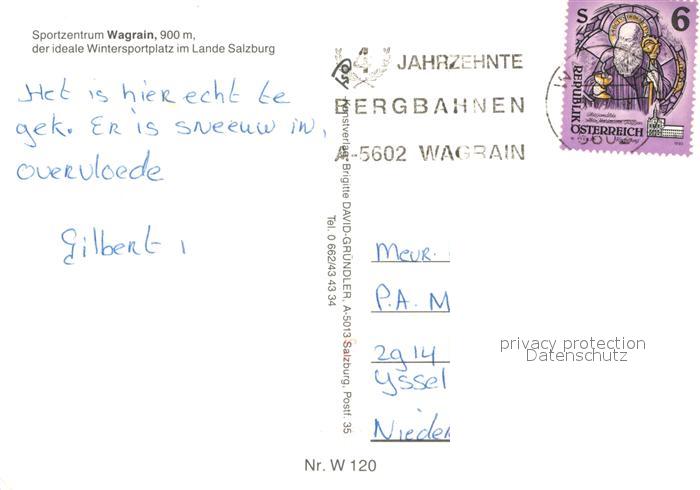 Sportzentrum Wagrain, 900 m,
der ideale Wintersportplatz im Lande Salzburg
Het is hier echt te
gek. Er is sneeuw in,
overvloede
Gilbert
4 JAHRZEHNTE
BERGBAHNEN
A-5602 WAGRAIN
S 6
REPUBLIK
ÖSTERREICH
Kunstverlag Brigitte DAVID-GRÜNDLER, A-5013 Salzburg, Postf. 35
Tel. 0 662/43 43 34
Meur.
P.A. M
2914
Yssel
Nieder
privacy protection
Datenschutz
Nr. W 120